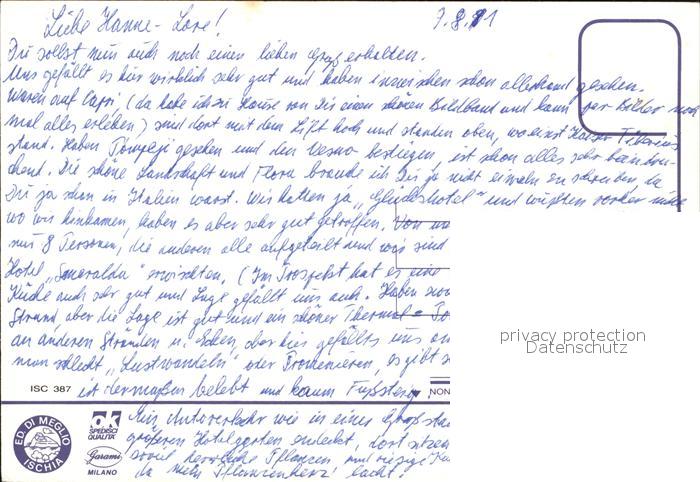 7.8.81
Liebe Hanne-Lore!
Du sollst nun auch noch einen lieben Gruß erhalten.
Uns gefällt es hier wirklich sehr gut und haben inzwischen schon allerhand gesehen.
Waren auf Capri (da habe ich zu Hause von Dir einen schönen Bildband und kann per Bilder noch
mal alles erleben) sind dort mit dem Lift hoch und standen oben, wo einst Kaiser Tiberius
stand. Haben Pompeji gesehen und den Vesuv bestiegen, ist schon alles sehr beeindru-
ckend. Die schöne Landschaft und Flora brauche ich Dir ja nicht einmal zu schreiben, da
Du ja schon in Italien warst. Wir hatten ja "Glückshotel" und wußten vorher nicht
wo wir hinkamen, haben es aber sehr gut getroffen. Von
nur 8 Personen, die anderen alle aufgeteilt und wir sind
Hotel "Smeralda" erwischten. (Im Prospekt hat es eine
Küche auch sehr gut und Lage gefällt uns auch. Haben
Strand, aber die Lage ist gut und ein schöner Thermal-
an anderen Stränden u. sehen, aber hier gefällts uns
man schlecht "Lustwandeln" oder Promenieren, es gibt
ist dermaßen belebt und kaum Fußsteig,
ISC 387
NON
Ein Autoverkehr wie in einer Großsta
größeren Hotelgarten entdeckt, dort sitzen
soviel herrliche Pflanzen und riesige
da mein Pflanzenherz lacht!
ED. DI MEGLIO
ISCHIA
ok
SPEDISCI
QUALITA'
Garami
MILANO
privacy protection
Datenschutz